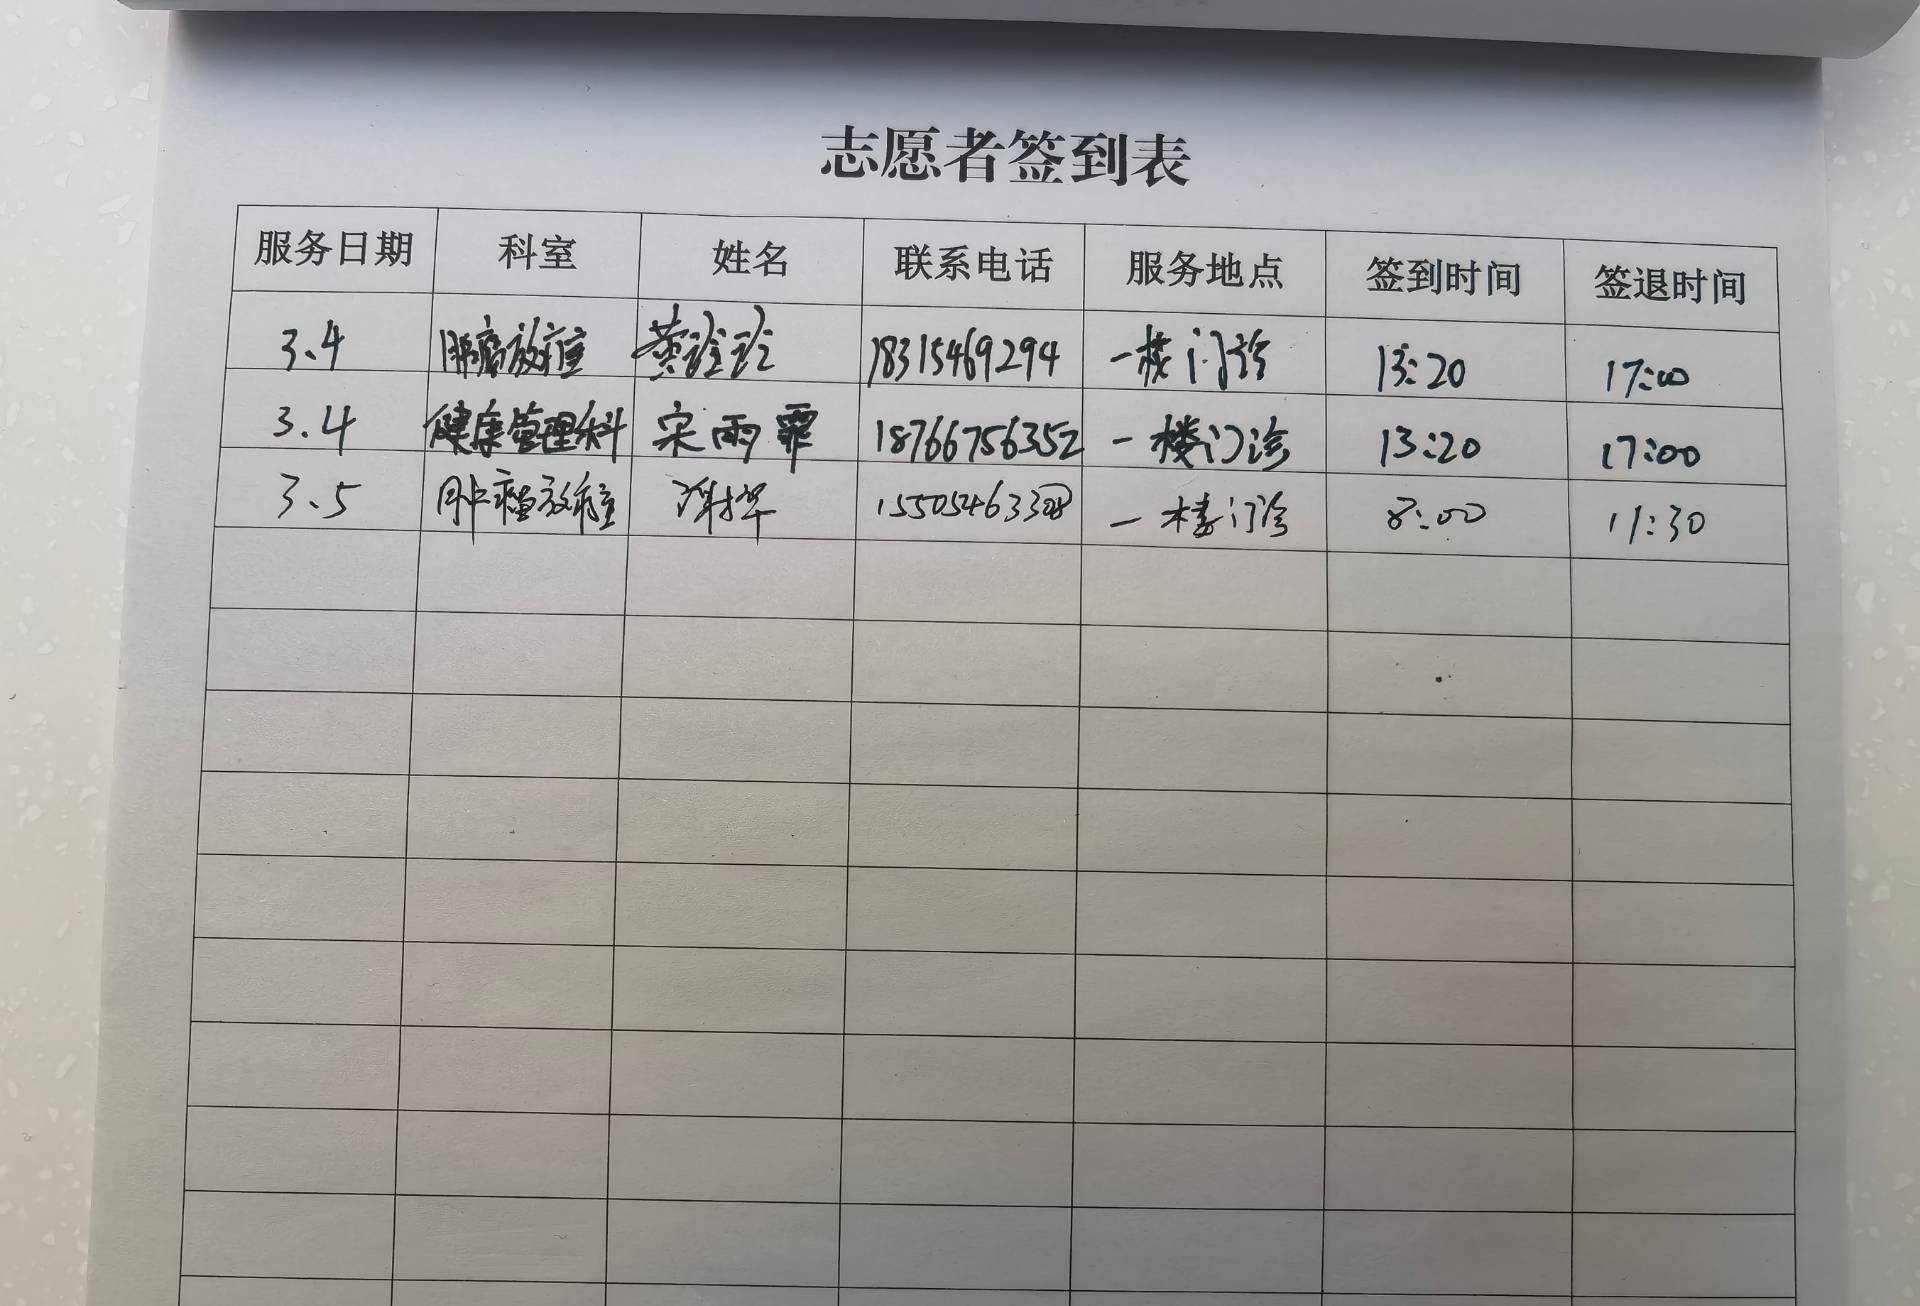 志愿者签到表
服务日期 科室 姓名 联系电话 服务地点 签到时间 签退时间
3.4 肿瘤放疗 黄 18315469294 一楼门诊 13:20 17:00
3.4 健康管理科 宋雨霏 18766756352 一楼门诊 13:20 17:00
3.5 肿瘤放疗 谢华 15505463308 一楼门诊 8:00 11:30